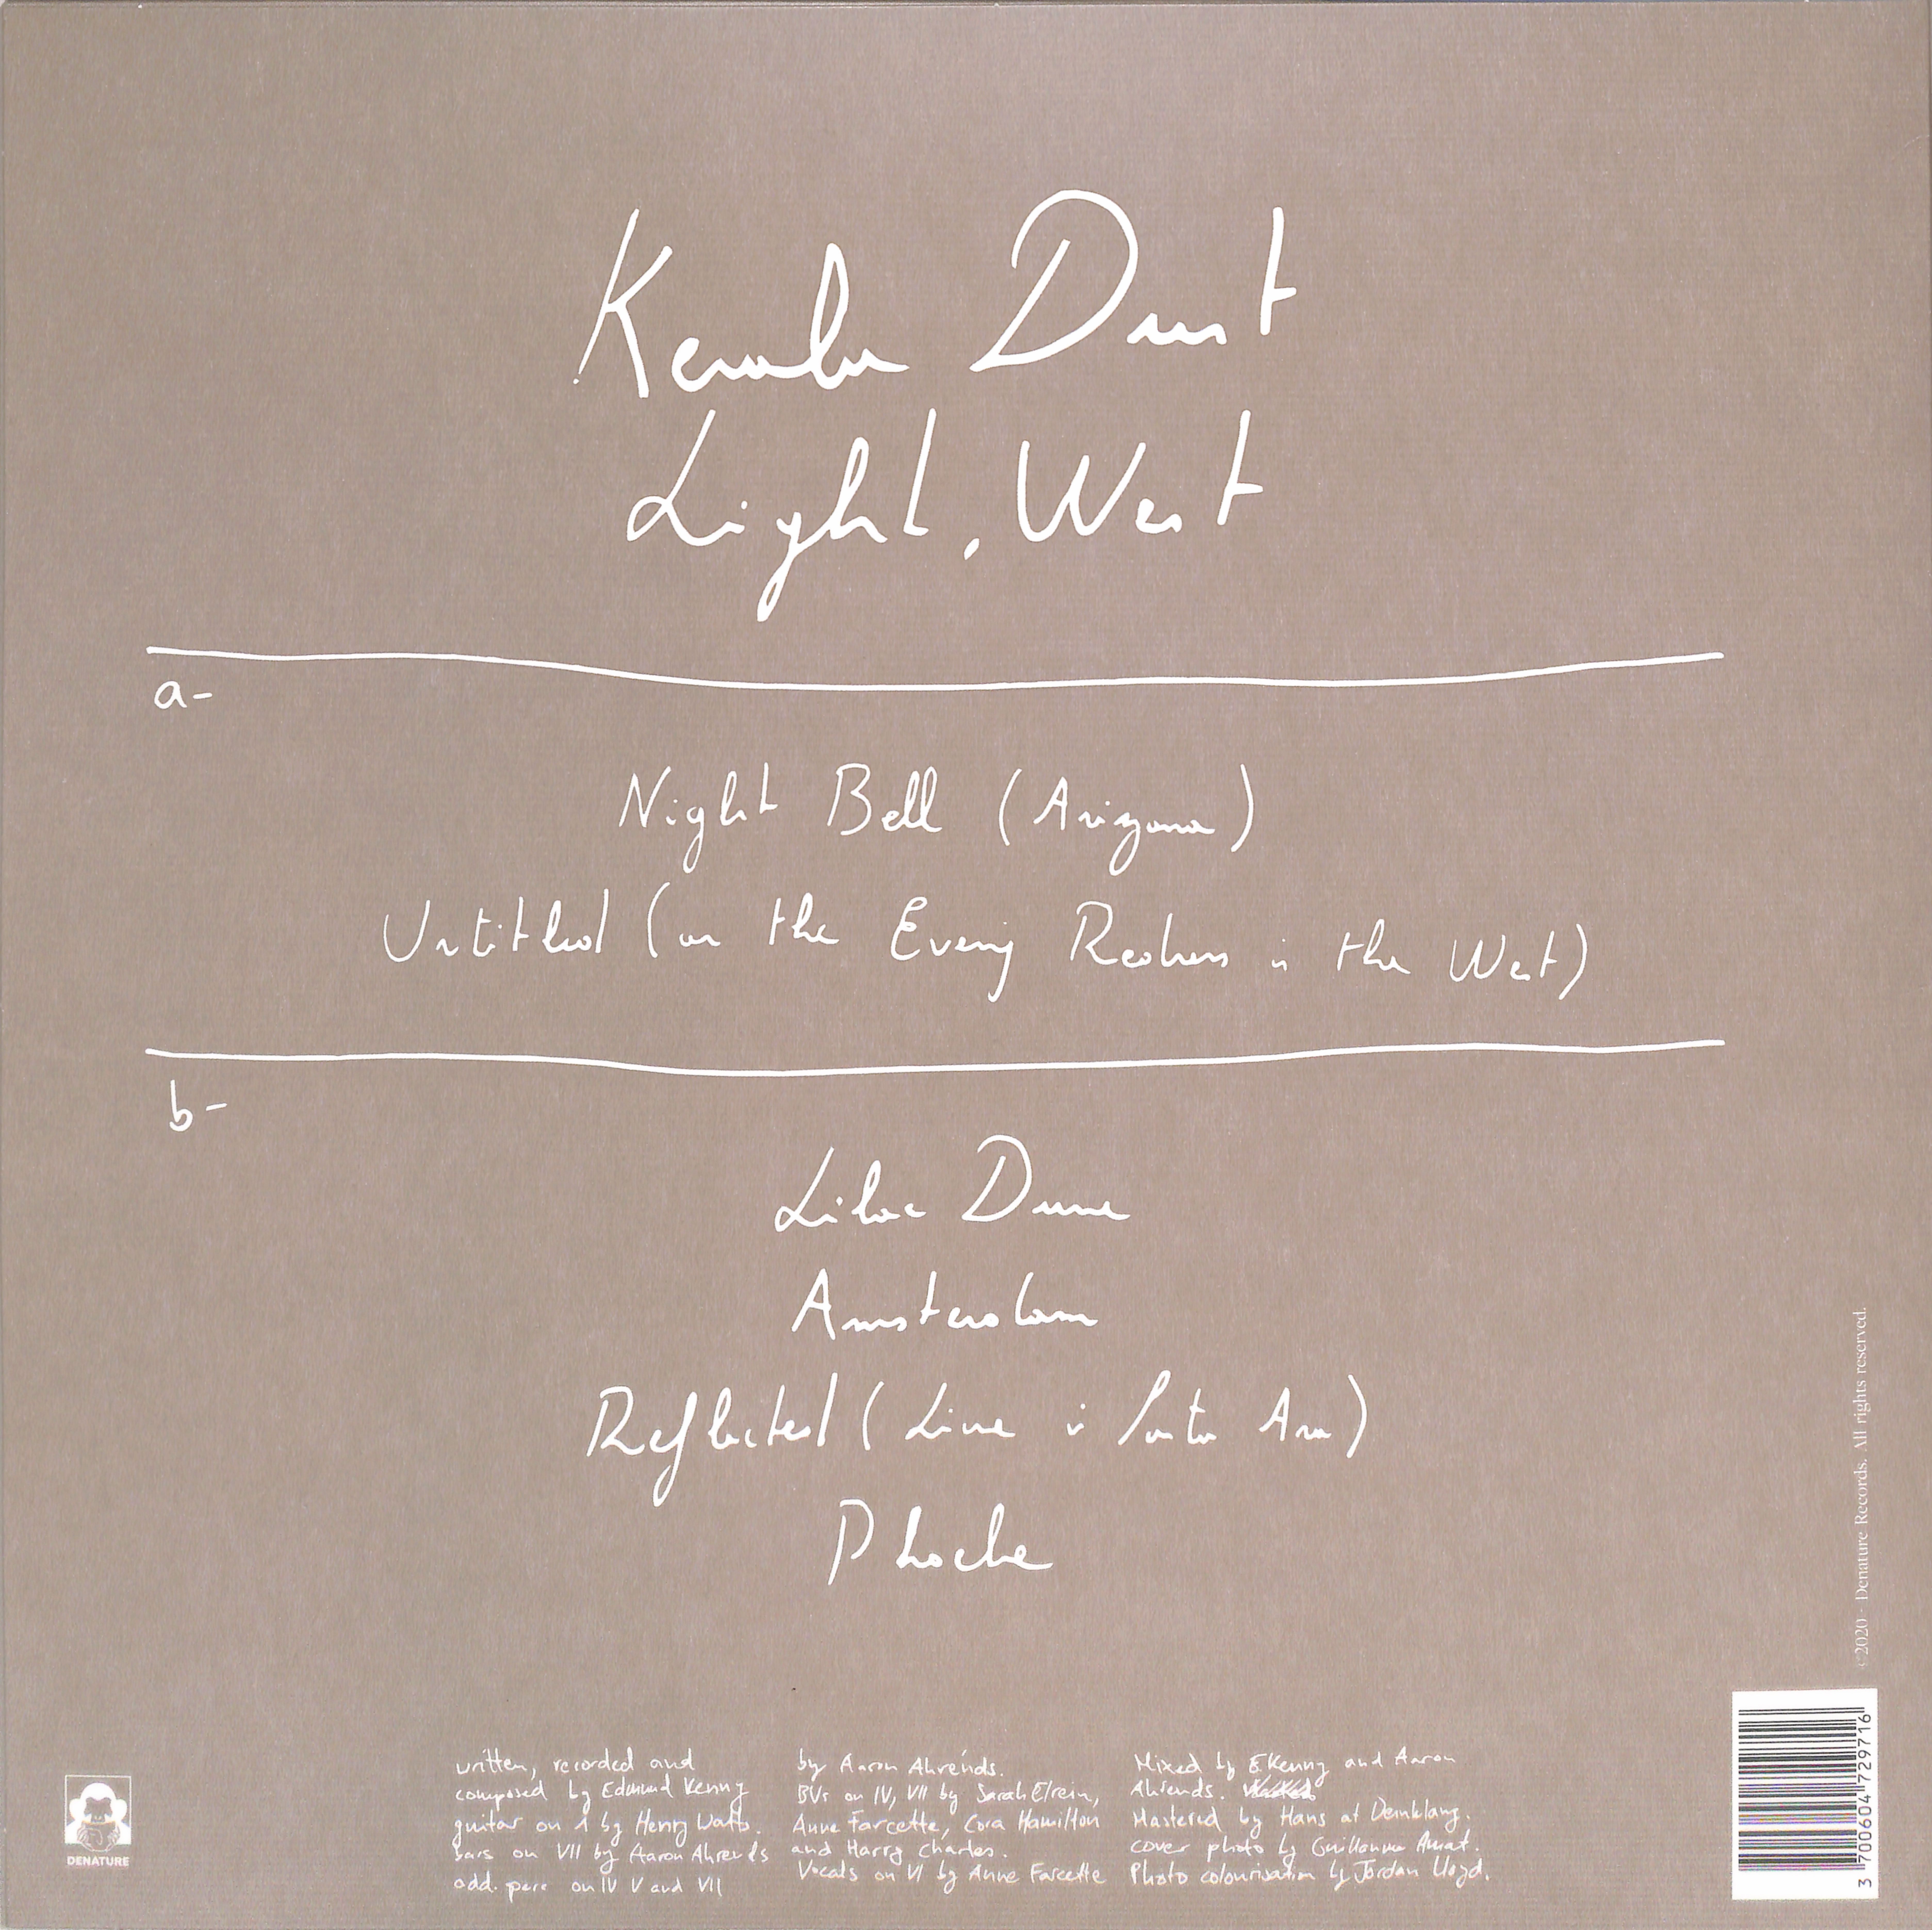 Kerala Dust
Light, West
a-
Night Bell (Arizona)
Untitled (on the Evening Reckons in the West)
b-
Lilac Dune
Amsterdam
Reflected (Live in Porto Ara)
Phoebe
written, recorded and
composed by Edmund Kenny
guitar on 1 by Henry Watts.
bars on VII by Aaron Ahrends
add. perc on IV V and VII
by Aaron Ahrends.
BVs on IV, VII by Sarah Elrein,
Anne Farcette, Cora Hamilton
and Harry Charles.
Vocals on VI by Anne Farcette
Mixed by E.Kenny and Aaron
Ahrends.
Mastered by Hans at Demklang.
cover photo by Guillaume Amat.
Photo colourisation by Jordan Lloyd.
DENATURE
©2020 - Denature Records. All rights reserved.
3 700604 729716